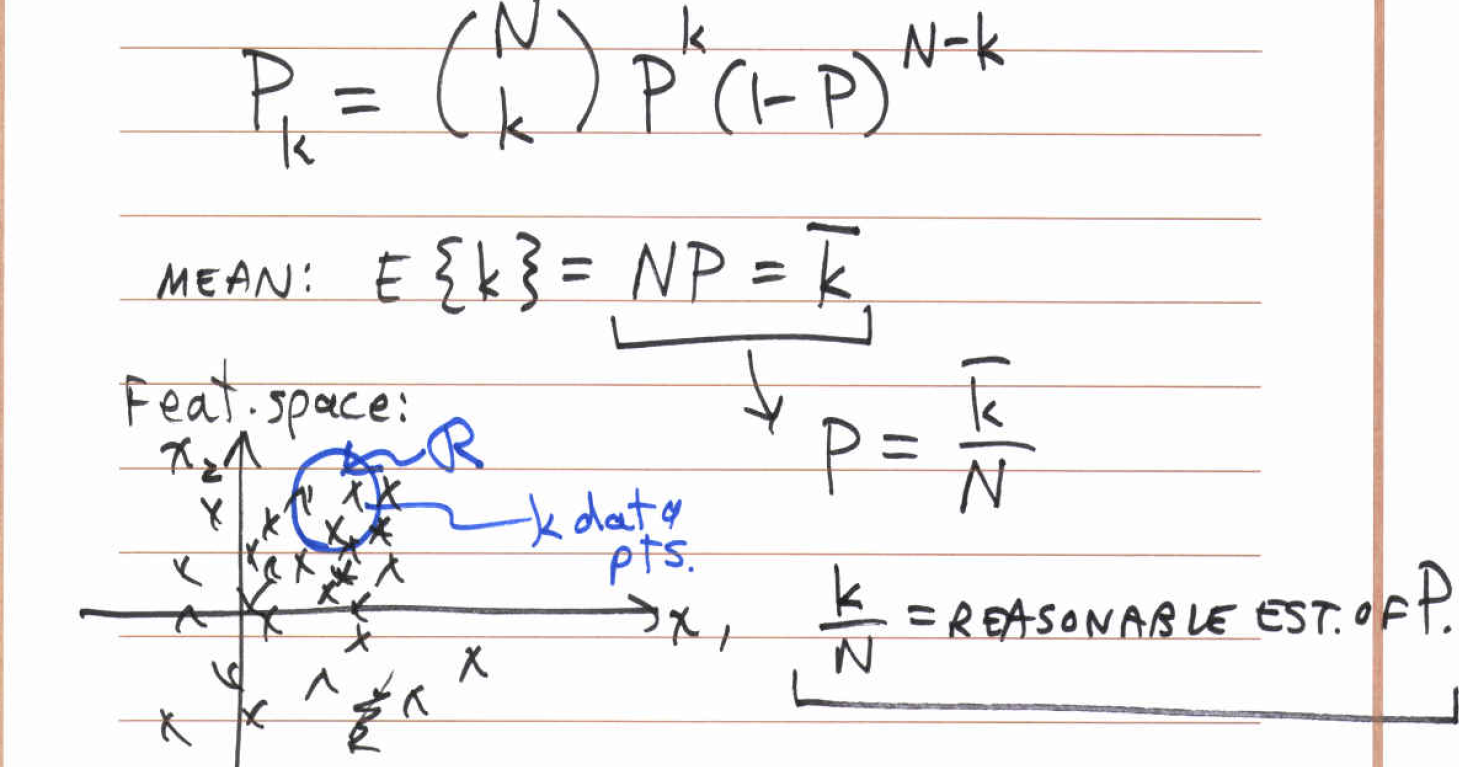 P_k = (N k) P^k (1-P)^{N-k}
MEAN: E {k} = NP = k̅
Feat. space:
P = k̅/N
x_2
R
k data
pts.
x_1
k/N = REASONABLE EST. OF P.